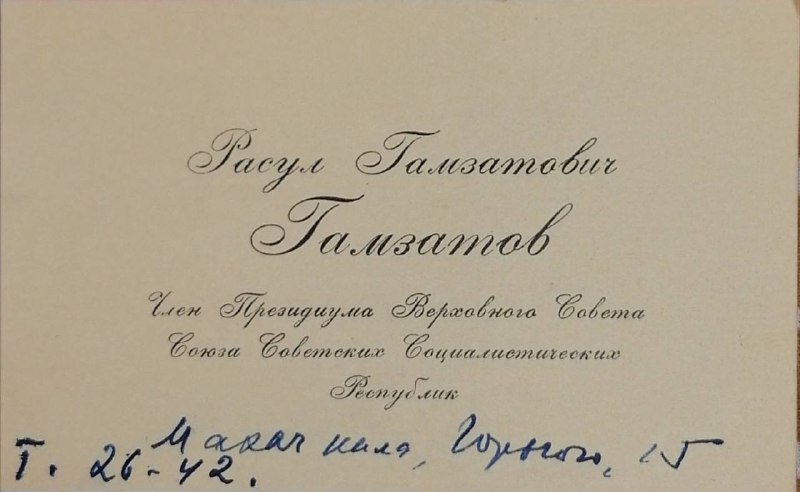 Расул Гамзатович
Гамзатов
Член Президиума Верховного Совета
Союза Советских Социалистических
Республик
Махачкала, Горького, 15
Т. 26-42.